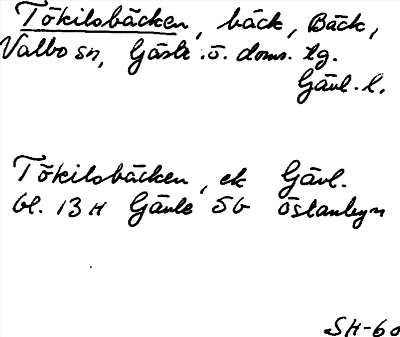 Tökilsbäcken, bäck, Bäck,
Valbo sn, Gästr. ö. doms. tg.
Gävl. l.
Tökilsbäcken, ek Gävl.
bl. 13 H Gävle 5b Östanbyn
SH-60